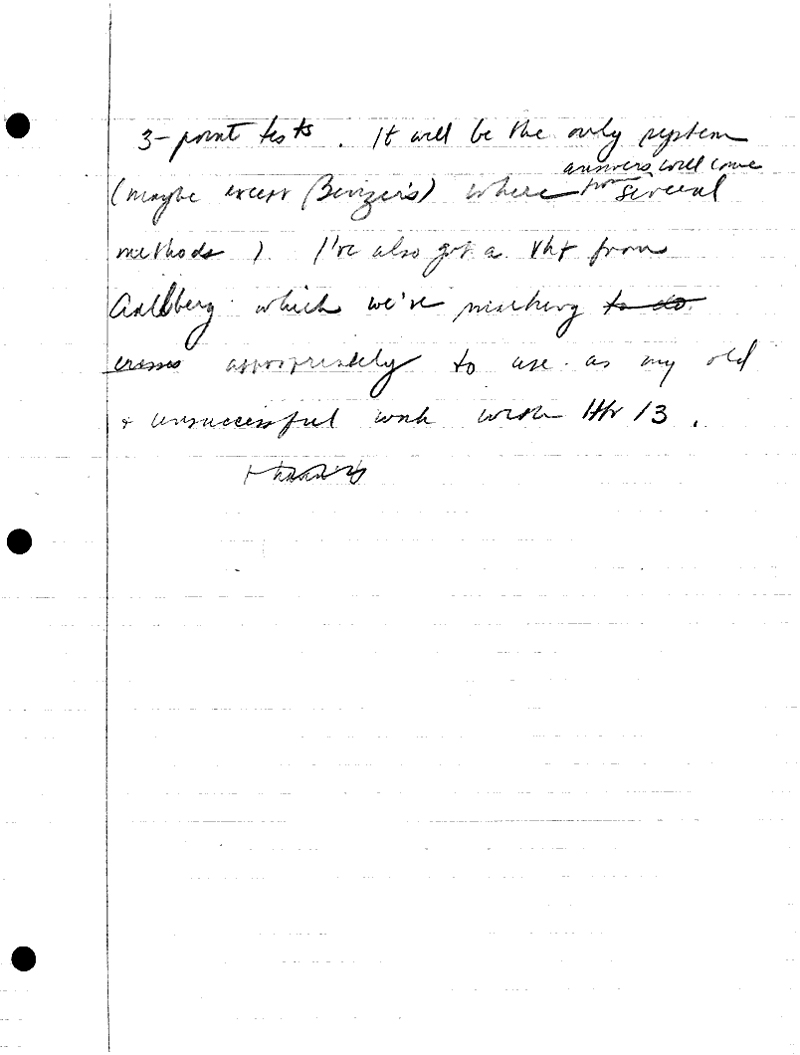 3-point tests. It will be the only system
(maybe except Benzer's) where answers will come from several
methods) I've also got a vht from
which we're marking to do
crosses appropriately to use as my old
+ unsuccessful work with Hfr 13.